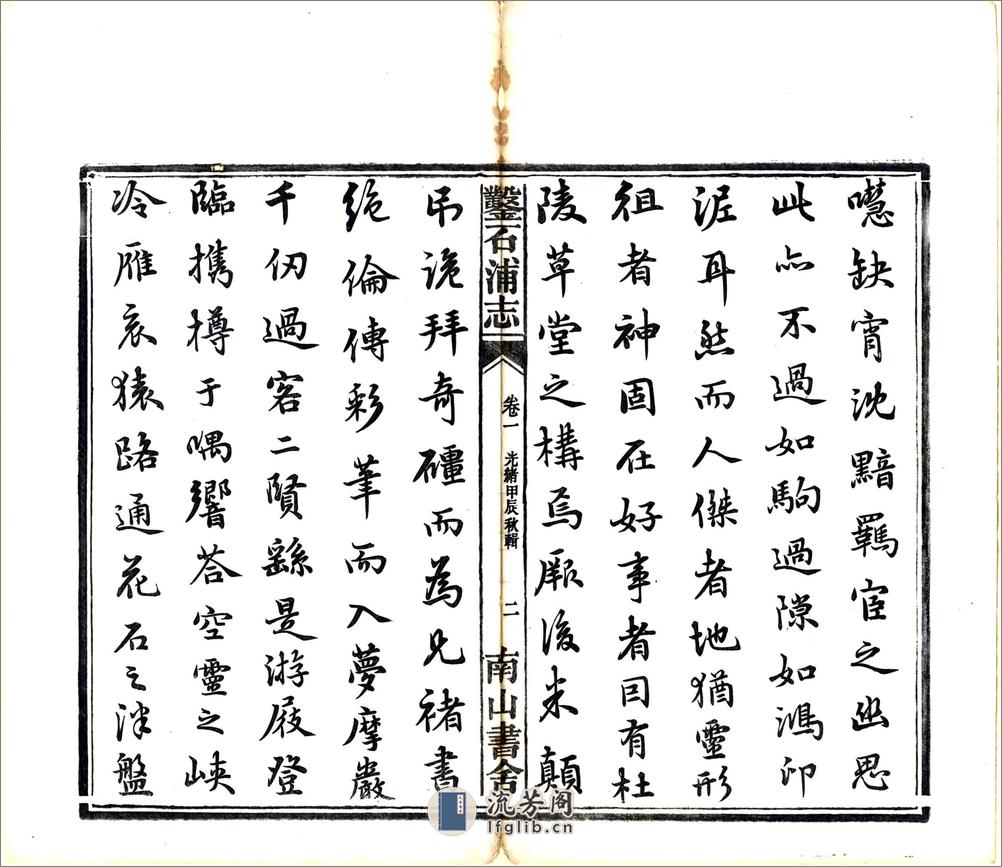 嚖缺宵沈黯羈宦之幽思
此亦不過如駒過隙如鴻印
泥耳然而人傑者地猶靈形
徂者神固在好事者因有杜
陵草堂之構焉厥後米顛
鑿石浦志
卷一
光緒甲辰秋輯
二
南山書舍
吊詭拜奇礓而為兄褚書
絶倫傳彩筆而入夢摩巖
千仞過客二賢繇是游屐登
臨携樽于喁響荅空靈之峽
冷雁哀猿路通花石之泮盤
流芳阁
lfglib.cn